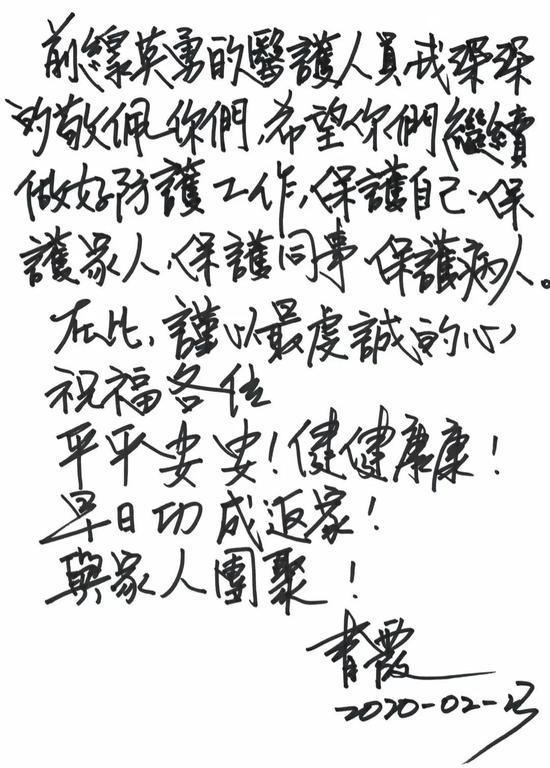 前線英勇的醫護人員,我深深
的敬佩你們,希望你們繼續
做好防護工作,保護自己,保
護家人,保護同事 保護病人。
在此,謹以最虔誠的心,
祝福各位
平平安安!健健康康!
早日功成返家!
與家人團聚!
青霞
2020-02-23